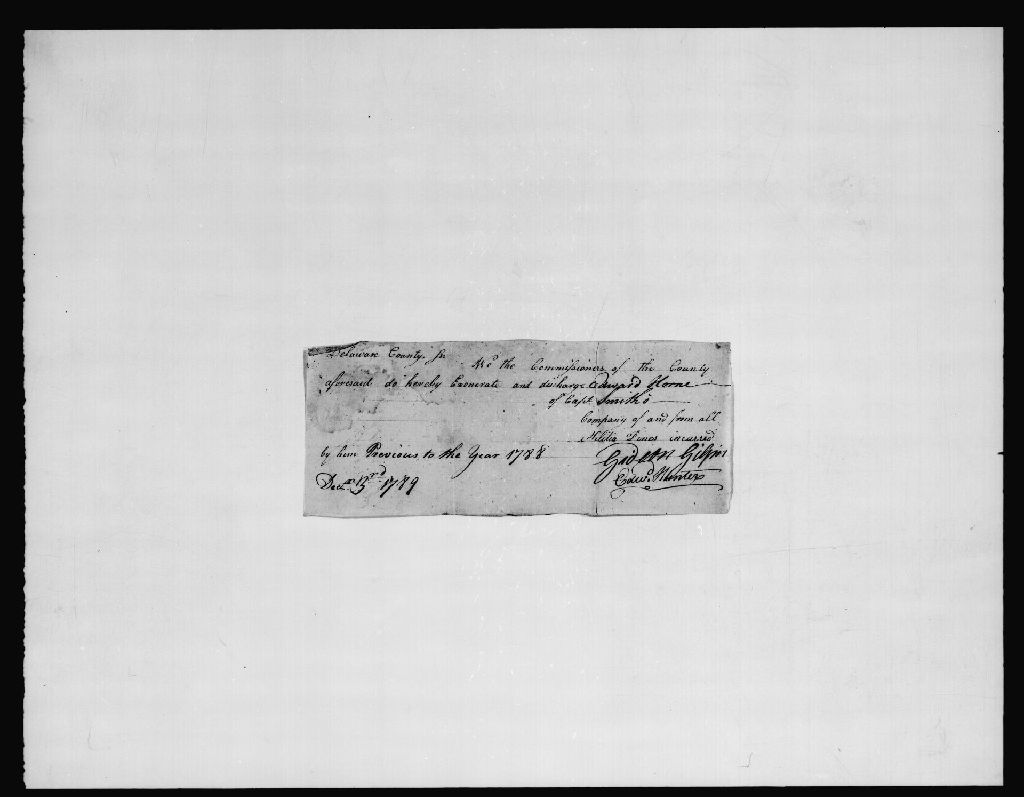 Delaware County Ss. We the Commissioners of the County
aforesaid do hereby Exonerate and discharge Edward Horne
of Capt. Smith's
Company of and from all
Militia Fines incurred
by him Previous to the Year 1788
Gideon Gilpin
Decr. 1789
Edwd. Hunter